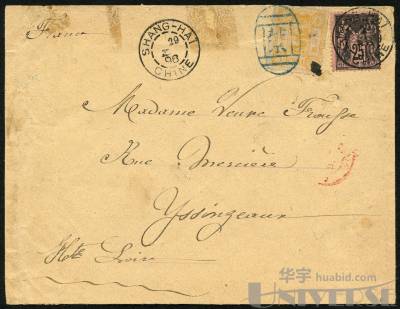 France
SHANG-HAI
29
00
CHINE
25
Madame Veuve
Rue Mercière
Yssingeaux
Hte Loire
华宇 huabid.com
UNIVERSE